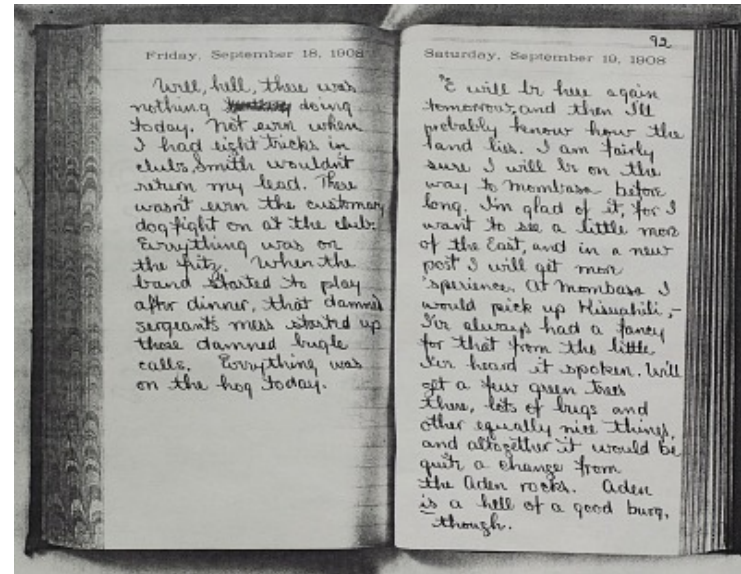 Friday, September 18, 1908
Well, hell, there was
nothing doing
today. Not even when
I had eight tricks in
clubs, Smith wouldn't
return my lead. There
wasn't even the customary
dogfight on at the club.
Everything was on
the fritz. When the
band started to play
after dinner, that damned
sergeants mess started up
those damned bugle
calls. Everything was
on the hog today.
92
Saturday, September 19, 1908
E will be here again
tomorrow, and then I'll
probably know how the
land lies. I am fairly
sure I will be on the
way to Mombasa before
long. I'm glad of it, for I
want to see a little more
of the East, and in a new
post I will get more
'sperience. At Mombasa I
would pick up Kisuahili,-
I've always had a fancy
for that from the little
I've heard it spoken. Will
get a few green trees
there, lots of bugs and
other equally nice things,
and altogether it would be
quite a change from
the Aden rocks. Aden
is a hell of a good burg,
though.